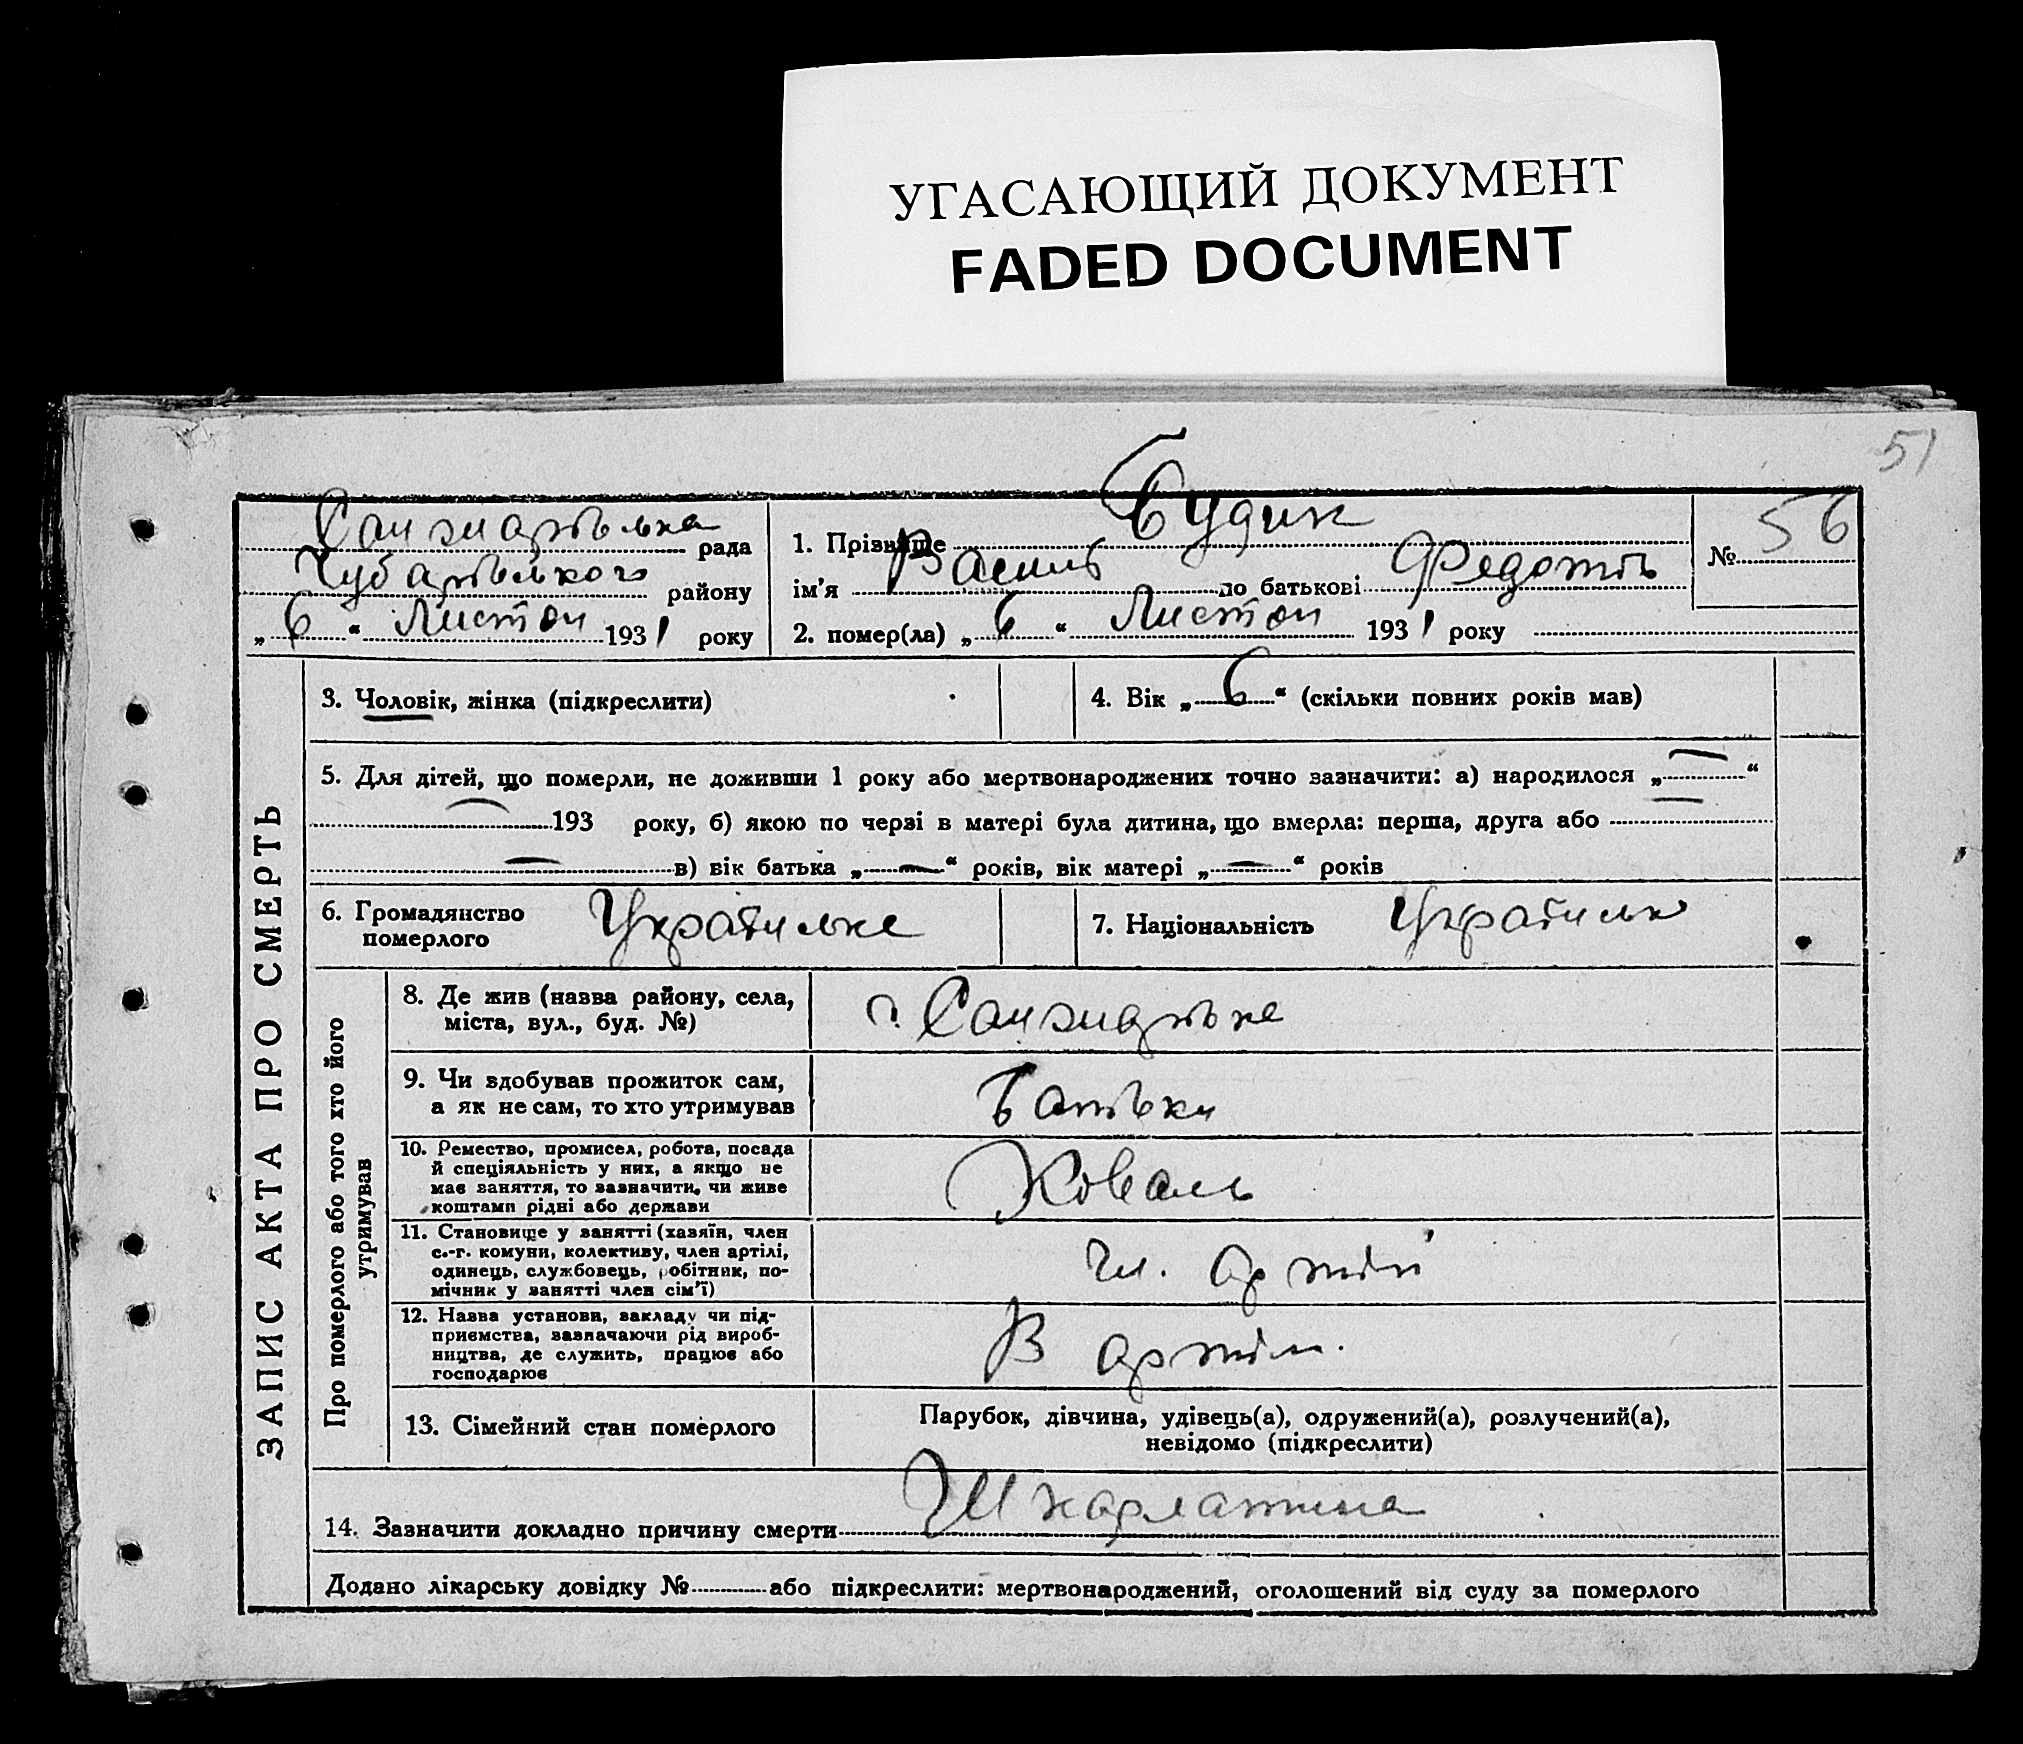 УГАСАЮЩИЙ ДОКУМЕНТ
FADED DOCUMENT
51
рада
району
„ 6 “ Листоп 1931 року
1. Прізвище Будик
ім'я Василь по батькові Федотів
№ 56
2. помер(ла) „ 6 “ Листоп 1931 року
ЗАПИС АКТА ПРО СМЕРТЬ
3. Чоловік, жінка (підкреслити)
4. Вік „ 6 “ (скільки повних років мав)
5. Для дітей, що померли, не доживши 1 року або мертвонароджених точно зазначити: а) народилося „ — “
— 193 року, б) якою по черзі в матері була дитина, що вмерла: перша, друга або —
— в) вік батька „ — “ років, вік матері „ — “ років
6. Громадянство
померлого
Українське
7. Національність
Про померлого або того хто його
утримував
8. Де жив (назва району, села,
міста, вул., буд. №)
9. Чи здобував прожиток сам,
а як не сам, то хто утримував
Батьки
10. Ремество, промисел, робота, посада
й спеціяльність у них, а якщо не
має заняття, то зазначити, чи живе
коштами рідні або держави
Коваль
11. Становище у занятті (хазяїн, член
с.-г. комуни, колективу, член артілі,
одинець, службовець, робітник, по-
мічник у занятті член сім'ї)
чл. артілі
12. Назва установи, закладу чи під-
приємства, зазначаючи рід вироб-
ництва, де служить, працює або
господарює
В артіл.
13. Сімейний стан померлого
Парубок, дівчина, удівець(а), одружений(а), розлучений(а),
невідомо (підкреслити)
14. Зазначити докладно причину смерти Шкарлатина
Додано лікарську довідку № або підкреслити: мертвонароджений, оголошений від суду за померлого